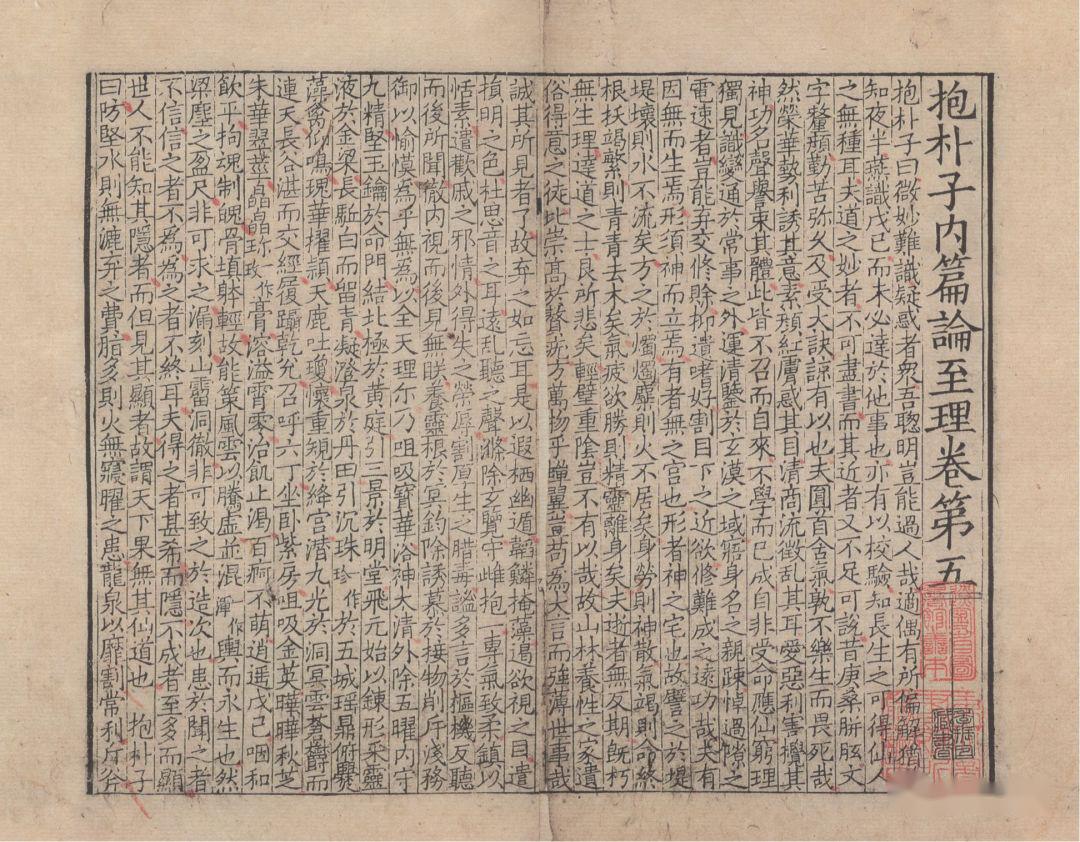 抱朴子内篇論至理卷第五
抱朴子曰微妙難識疑惑者衆吾聰明豈能過人哉適偶有所偏解猶
知夜半燕識戊巳而未必達於他事也亦有以校驗知長生之可得仙人
之無種耳夫道之妙者不可盡書而其近者又不足可說昔庚桑胼胝文
字釐顏勤苦弥久及受大訣諒有以也夫圓首含氣孰不樂生而畏死哉
然榮華勢利誘其意素顏紅膚惑其目清商流徵乱其耳愛惡利害攪其
神功名聲譽束其體此皆不召而自來不學而已成自非受命應仙窮理
獨見識變通於常事之外運清鑒於玄漠之域寤身名之親踈悼過隙之
電速者豈能弃交修賒抑遺嗜好割目下之近欲修難成之遠功哉夫有
因無而生焉形須神而立焉有者無之宫也形者神之宅也故譬之於堤
堤壞則水不流矣方之於燭燭糜則火不居矣身勞則神散氣竭則命終
根抜竭繁則青青去木矣氣疲欲勝則精靈離身矣夫逝者無反期旣朽
無生理達道之士良所悲矣輕璧重陰豈不有以哉故山林養性之家遺
俗得意之徒比崇髙於贅疣方萬物乎蟬翼豈苟為大言而強薄世事哉
誠其所見者了故弃之如忘耳是以遐栖幽遁韜鱗掩藻遏欲視之目遣
損明之色杜思音之耳遠乱聽之聲滌除玄覽守雌抱一專氣致柔鎮以
恬素遣歡戚之邪情外得失之榮辱割厚生之腊毒謐多言於樞機反聽
而後所聞徹内視而後見無朕養靈根於冥鈞除誘慕於接物削斥淺務
御以愉慔為乎無為以全天理尓乃咀吸寳華浴神太清外除五曜内守
九精堅玉鑰於命門結北極於黄庭引三景於明堂飛元始以鍊形采靈
液於金梁長駈白而留青凝澄泉於丹田引沉珠珍作於五城瑶鼎俯爨
藻禽仰鳴瑰華擢頴天鹿吐瓊懷重規於絳宫潜九光於洞冥雲蒼鬱而
連天長谷湛而交經履躡乾兊召呼六丁坐卧紫房咀吸金英曄曄秋芝
朱華翠莖皛皛珎玫作膏溶溢霄零治飢止渴百痾不萌逍遥戊巳咽和
飲平拘魂制魄骨填躰輕故能䇿風雲以騰虛並混渾作輿而永生也然
梁塵之盈尺非可求之漏刻山霤洞徹非可致之於造次也患於聞之者
不信信之者不為為之者不終耳夫得之者甚希而隱不成者至多而顯
世人不能知其隱者而但見其顯者故謂天下果無其仙道也 抱朴子
曰防堅水則無漉弃之費脂多則火無寢曜之患龍泉以靡割常利斤斧